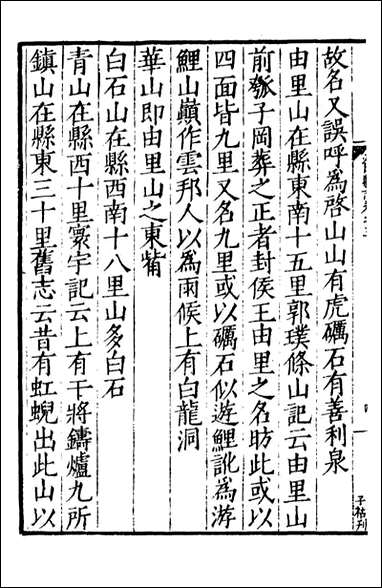 故名又誤呼爲啓山山有虎礪石有善利泉
由里山在縣東南十五里郭璞條山記云由里山
前𤓰子岡葬之正者封侯王由里之名昉此或以
四面皆九里又名九里或以礪石似遊鯉訛爲游
鯉山巔作雲邦人以爲雨候上有白龍洞
華山即由里山之東觜
白石山在縣西南十八里山多白石
青山在縣西十里寰宇記云上有干將鑄爐九所
鎮山在縣東三十里舊志云昔有虹蜺出此山以
子祜刋